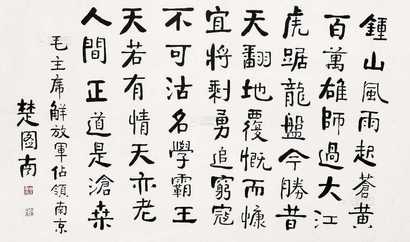 鍾山風雨起蒼黃
百萬雄師過大江
虎踞龍盤今勝昔
天翻地覆慨而慷
宜將剩勇追窮寇
不可沽名學霸王
天若有情天亦老
人間正道是滄桑
毛主席解放軍佔領南京
楚圖南